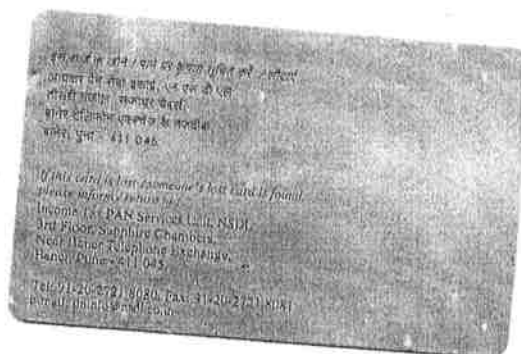 इस कार्ड के खोने / पाने पर कृपया सूचित करें / लौटाएं
आयकर पैन सेवा इकाई, एन एस डी एल
तीसरी मंजिल, सफायर चेंबर्स,
बानेर टेलिफोन एक्स्चेंज के नजदीक
बानेर, पुना - 411 045
If this card is lost / someone's lost card is found,
please inform / return to :
Income Tax PAN Services Unit, NSDL
3rd Floor, Sapphire Chambers,
Near Baner Telephone Exchange,
Baner, Pune - 411 045.
Tel: 91-20-2721 8080, Fax: 91-20-2721 8081
e-mail: tininfo@nsdl.co.in